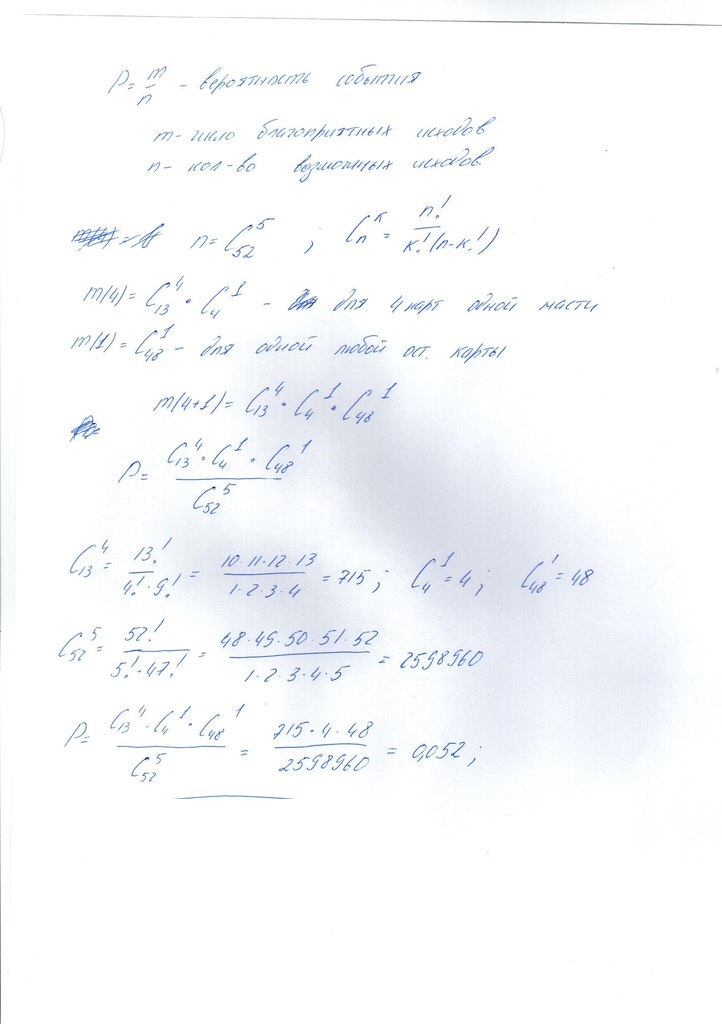 P = m/n - вероятность события
m - число благоприятных исходов
n - кол-во возможных исходов.
n = C₅₂⁵ ; Cₙᴷ = n!/(к!(n-к!)
m(4) = C₁₃⁴ · C₄¹ - для 4 карт одной масти
m(1) = C₄₈¹ - для одной любой ост. карты
m(4+1) = C₁₃⁴ · C₄¹ · C₄₈¹
P = (C₁₃⁴ · C₄¹ · C₄₈¹)/C₅₂⁵
C₁₃⁴ = 13!/(4! · 9!) = (10·11·12·13)/(1·2·3·4) = 715 ; C₄¹ = 4 ; C₄₈¹ = 48
C₅₂⁵ = 52!/(5! · 47!) = (48·49·50·51·52)/(1·2·3·4·5) = 2598960
P = (C₁₃⁴ · C₄¹ · C₄₈¹)/C₅₂⁵ = (715 · 4 · 48)/2598960 = 0,052 ;